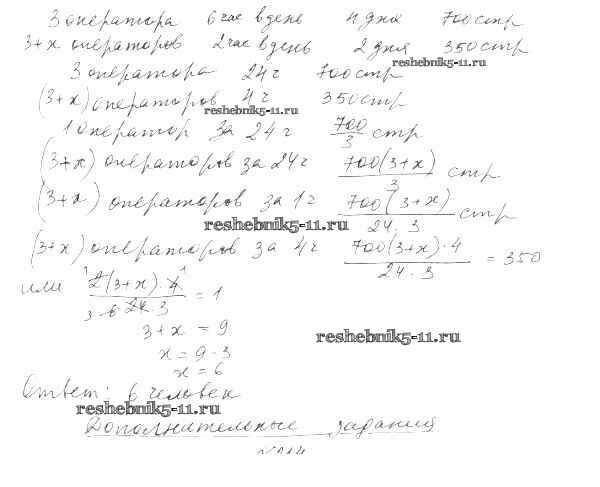 3 оператора 6 час в день 4 дня 700 стр
3+x операторов 2 час в день 2 дня 350 стр
reshebnik5-11.ru
3 оператора 24 ч 700 стр
(3+x) операторов 4 ч 350 стр
reshebnik5-11.ru
1 оператор за 24 ч 700/3 стр
(3+x) операторов за 24 ч 700(3+x)/3 стр
(3+x) операторов за 1 ч 700(3+x)/24·3 стр
reshebnik5-11.ru
(3+x) операторов за 4 ч 700(3+x)·4/24·3 = 350
или 2(3+x)·4/24·3 = 1
3+x = 9
reshebnik5-11.ru
x = 9-3
x = 6
Ответ: 6 человек
reshebnik5-11.ru
Дополнительные задания